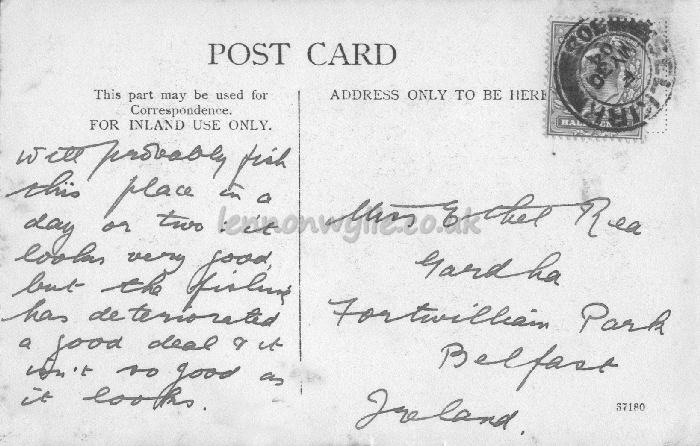 POST CARD
This part may be used for
Correspondence.
FOR INLAND USE ONLY.
ADDRESS ONLY TO BE HERE
will probably fish
this place in a
day or two. it
looks very good,
but the fishing
has deteriorated
a good deal & it
isn't so good as
it looks.
Miss Ethel Rea
Gardha
Fortwilliam Park
Belfast
Ireland.
37180
lennonwylie.co.uk